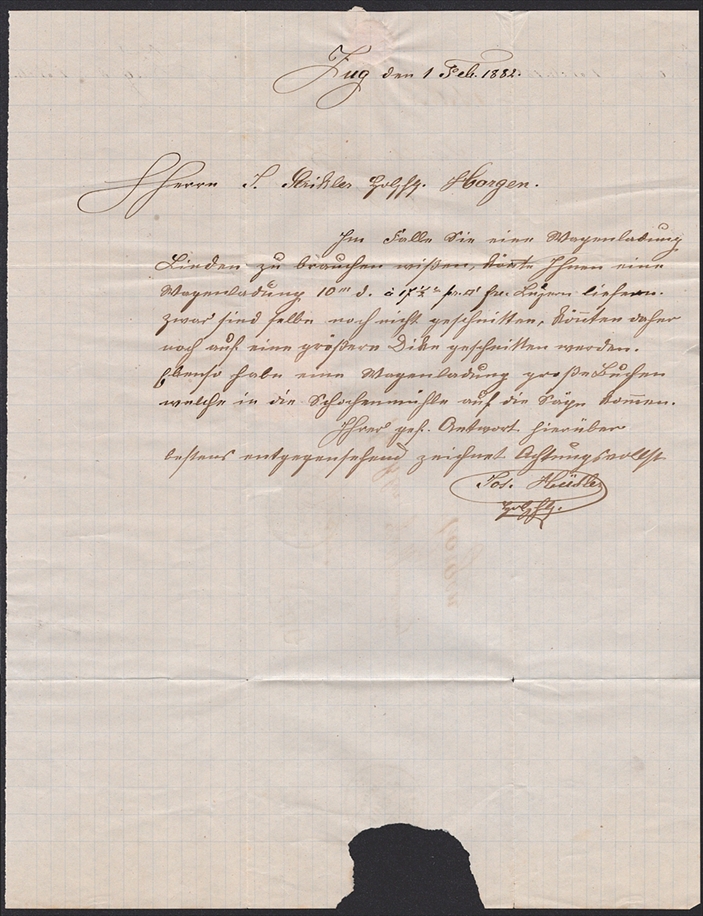 Zug den 1 Feb. 1882.
Herrn J. Strikler Holzhg. Horgen.
Im Falle Sie eine Wagenladung
Linden zu brauchen wißen, könte Ihnen eine
Wagenladung 10 d. à 17½ fr. Luzern liefern.
zwar sind selbe noch nicht geschnitten, könnten daher
noch auf eine größere Dike geschnitten werden.
Ebenso habe eine Wagenladung große Buchen
welche in die Schochenmühle auf die Säge kommen.
Ihrer gef. Antwort hierüber
bestens entgegensehend zeichnet Achtungsvollst
Jos.
Holzhg.